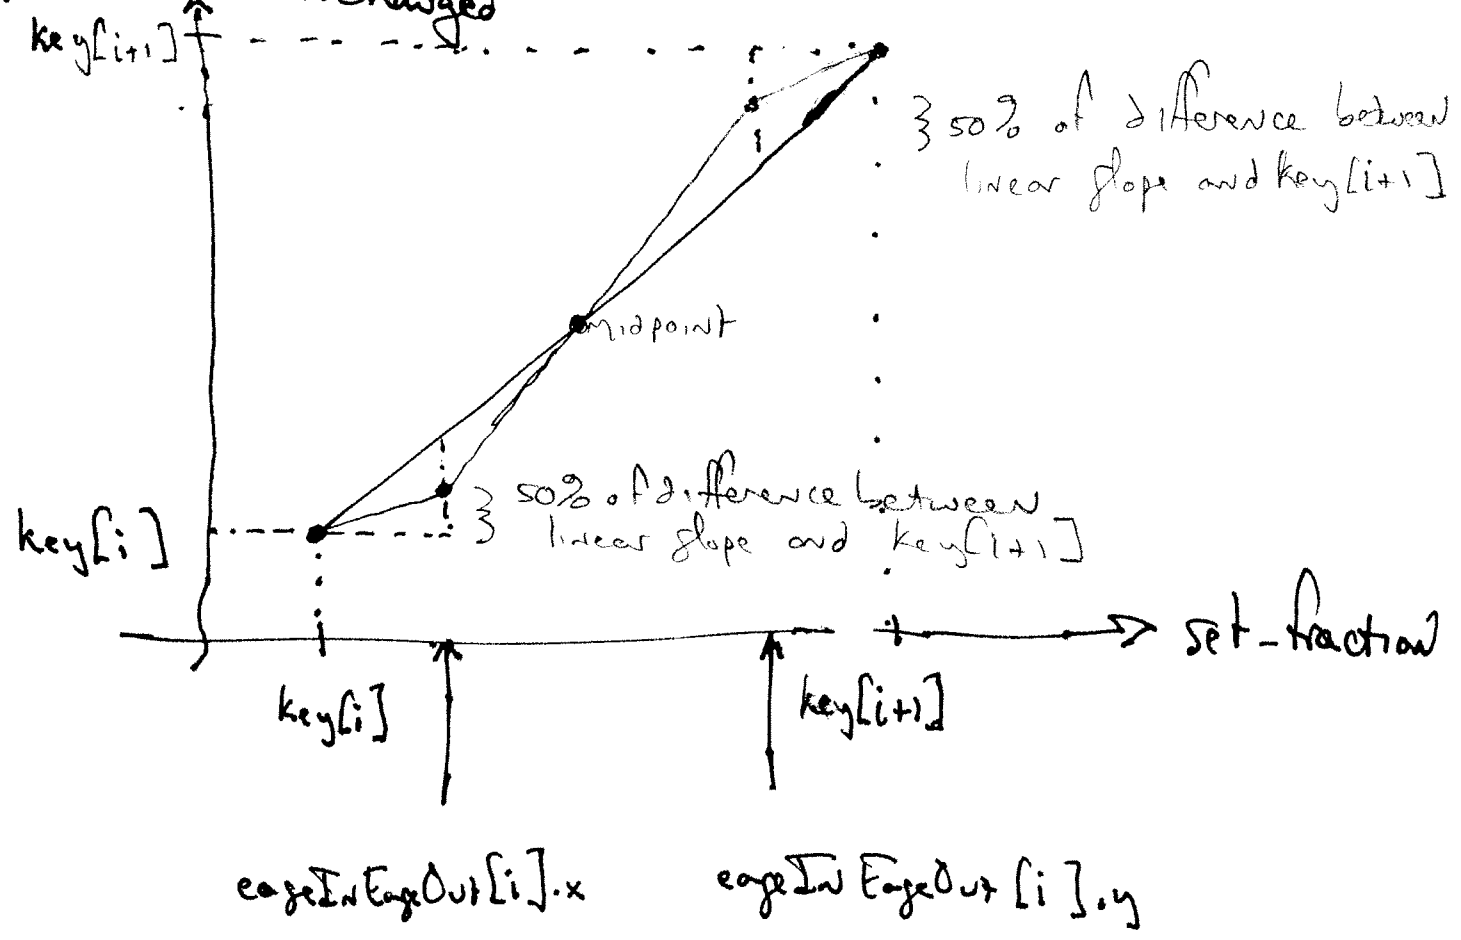 key[i+1]
50% of difference between
linear slope and key[i+1]
midpoint
50% of difference between
linear slope and key[i+1]
key[i]
set_fraction
key[i]
key[i+1]
easeInEaseOut[i].x
easeInEaseOut[i].y